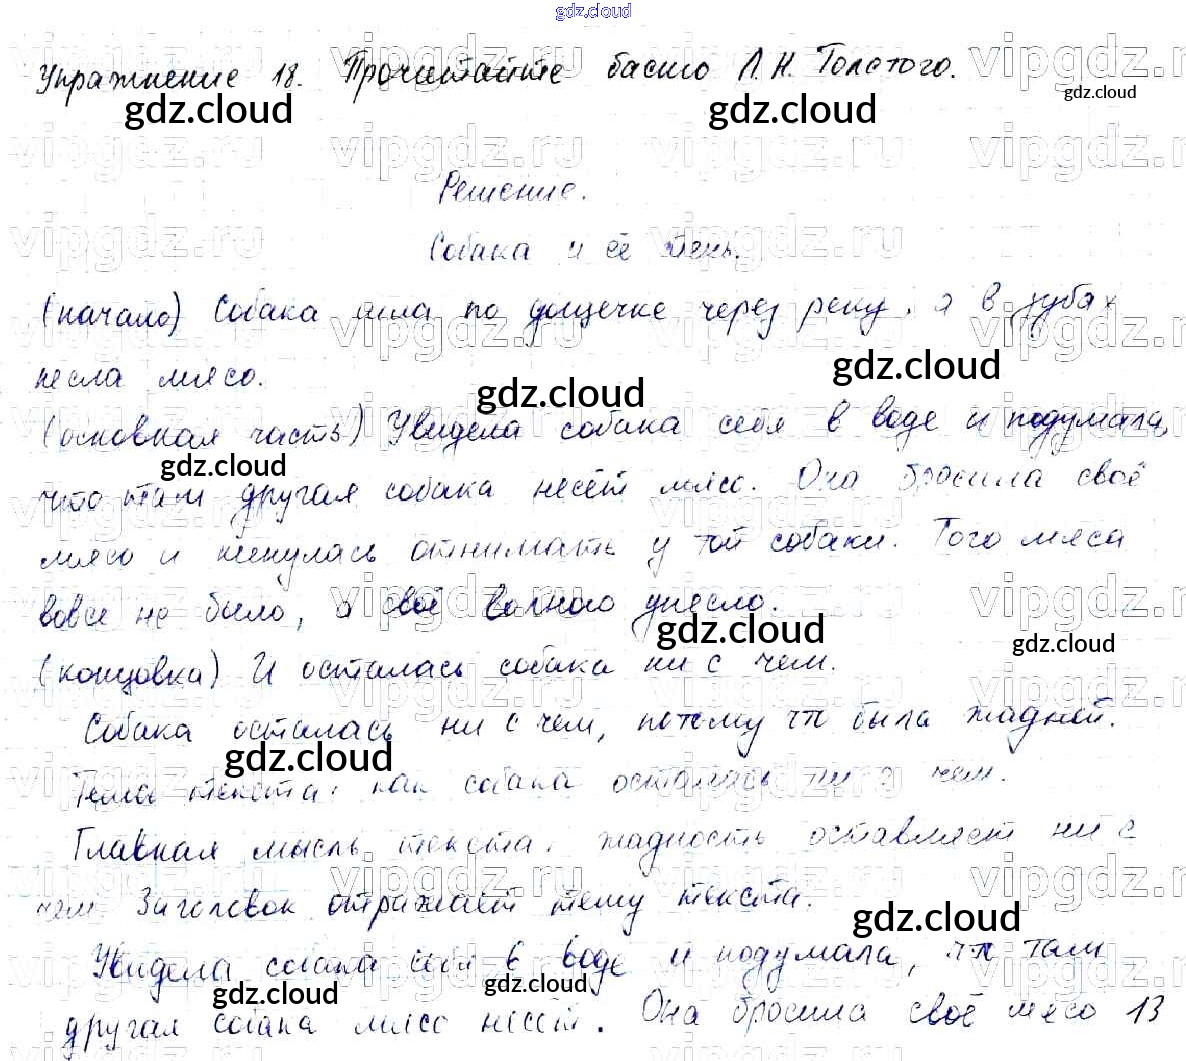 gdz.cloud
Упражнение 18. Прочитайте басню Л.Н. Толстого.
gdz.cloud gdz.cloud gdz.cloud
vipgdz.ru vipgdz.ru vipgdz.ru
Решение.
Собака и её тень.
(начало) Собака шла по дощечке через реку, а в зубах
несла мясо.
gdz.cloud gdz.cloud
(основная часть) Увидела собака себя в воде и подумала,
gdz.cloud
что там другая собака несёт мясо. Она бросила своё
мясо и кинулась отнимать у той собаки. Того мяса
вовсе не было, а своё волною унесло.
gdz.cloud gdz.cloud
(концовка) И осталась собака ни с чем.
Собака осталась ни с чем, потому что была жадной.
gdz.cloud
Тема текста: как собака осталась ни с чем.
Главная мысль текста: жадность оставляет ни с
чем. Заголовок отражает тему текста.
gdz.cloud
Увидела собака себя в воде и подумала, что там
gdz.cloud gdz.cloud
другая собака мясо несёт. Она бросила своё мясо 13